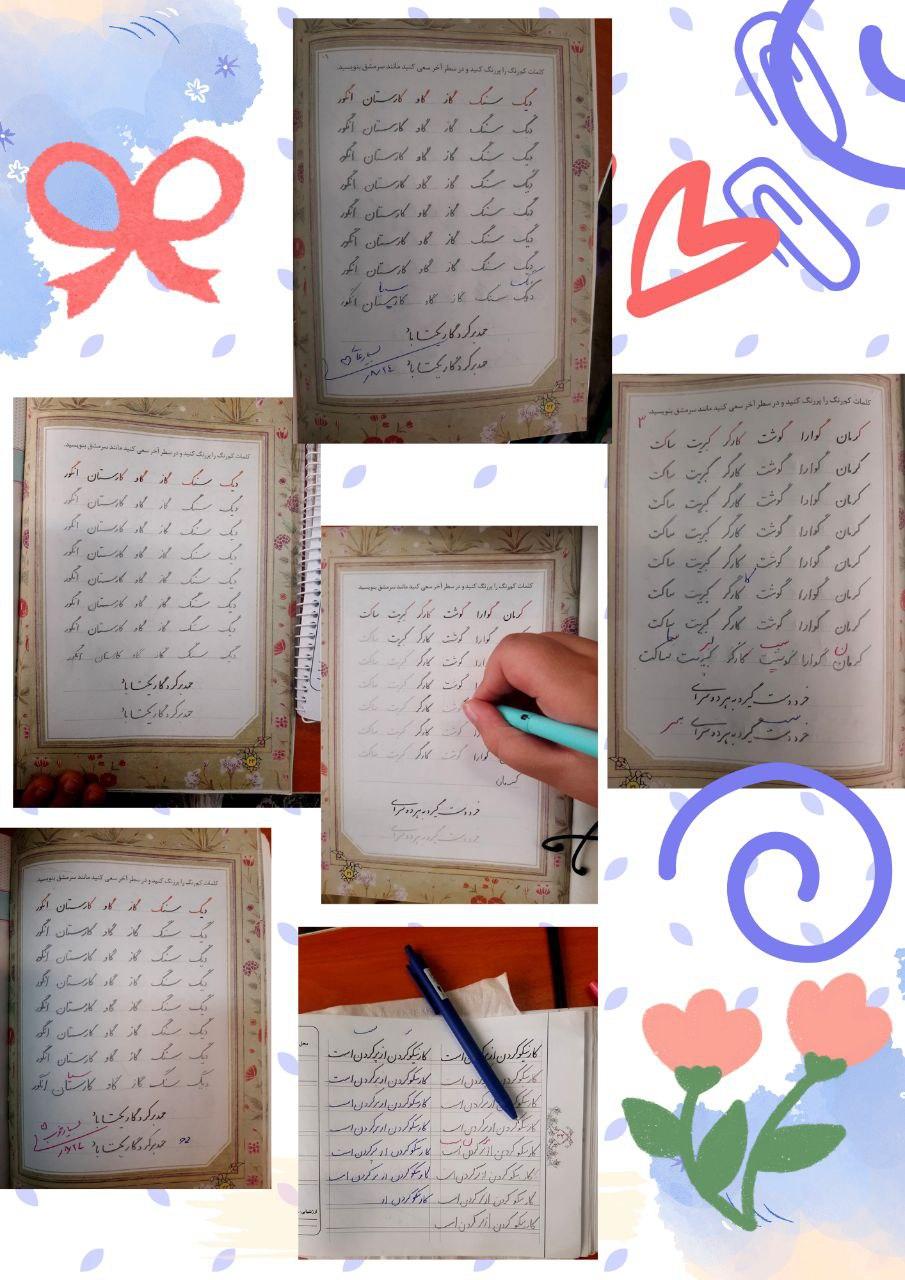 کلمات کم‌رنگ را پررنگ کنید و در سطر آخر سعی کنید مانند سرمشق بنویسید.
دیگ سنگ گاز گاو کارستان انگور
دیگ سنگ گاز گاو کارستان انگور
دیگ سنگ گاز گاو کارستان انگور
دیگ سنگ گاز گاو کارستان انگور
دیگ سنگ گاز گاو کارستان انگور
دیگ سنگ گاز گاو کارستان انگور
دیگ سنگ گاز گاو کارستان انگور
دیگ سنگ گاز گاو کارستان انگور
حمد بر کردگار یکتا باد
حمد بر کردگار یکتا باد
۲۳
کلمات کم‌رنگ را پررنگ کنید و در سطر آخر سعی کنید مانند سرمشق بنویسید.
۳
کرمان گوارا گوشت کارگر کبریت ساکت
کرمان گوارا گوشت کارگر کبریت ساکت
کرمان گوارا گوشت کارگر کبریت ساکت
کرمان گوارا گوشت کارگر کبریت ساکت
کرمان گوارا گوشت کارگر کبریت ساکت
کرمان گوارا گوشت کارگر کبریت ساکت
کرمان گوارا گوشت کارگر کبریت ساکت
کرمان گوارا گوشت کارگر کبریت ساکت
خرد دست گیرد به هر دو سرای
خرد دست گیرد به هر دو سرای
کلمات کم‌رنگ را پررنگ کنید و در سطر آخر سعی کنید مانند سرمشق بنویسید.
دیگ سنگ گاز گاو کارستان انگور
دیگ سنگ گاز گاو کارستان انگور
دیگ سنگ گاز گاو کارستان انگور
دیگ سنگ گاز گاو کارستان انگور
دیگ سنگ گاز گاو کارستان انگور
دیگ سنگ گاز گاو کارستان انگور
دیگ سنگ گاز گاو کارستان انگور
دیگ سنگ گاز گاو کارستان انگور
حمد بر کردگار یکتا باد
حمد بر کردگار یکتا باد
۲۳
کلمات کم‌رنگ را پررنگ کنید و در سطر آخر سعی کنید مانند سرمشق بنویسید.
کرمان گوارا گوشت کارگر کبریت ساکت
گوارا گوشت کارگر کبریت ساکت
گوشت کارگر کبریت ساکت
گوشت کارگر کبریت ساکت
کارگر کبریت ساکت
کارگر کبریت ساکت
گوشت کارگر کبریت ساکت
کرمان
خرد دست گیرد به هر دو سرای
خرد دست گیرد به هر دو سرای
کلمات کم‌رنگ را پررنگ کنید و در سطر آخر سعی کنید مانند سرمشق بنویسید.
دیگ سنگ گاز گاو کارستان انگور
دیگ سنگ گاز گاو کارستان انگور
دیگ سنگ گاز گاو کارستان انگور
دیگ سنگ گاز گاو کارستان انگور
دیگ سنگ گاز گاو کارستان انگور
دیگ سنگ گاز گاو کارستان انگور
دیگ سنگ گاز گاو کارستان انگور
دیگ سنگ گاز گاو کارستان انگور
حمد بر کردگار یکتا باد
حمد بر کردگار یکتا باد
کار نیکو کردن از پر کردن است
کار نیکو کردن از پر کردن است
کار نیکو کردن از پر کردن است
کار نیکو کردن از پر کردن است
کار نیکو کردن از پر کردن است
کار نیکو کردن از پر کردن است
کار نیکو کردن از پر کردن است
کار نیکو کردن از پر کردن است
کار نیکو کردن از پر کردن است
کار نیکو کردن از پر کردن است
کار نیکو کردن از پر کردن است
کار نیکو کردن از پر کردن است
کار نیکو کردن از پر کردن است
کار نیکو کردن از پر کردن است
کار نیکو کردن از